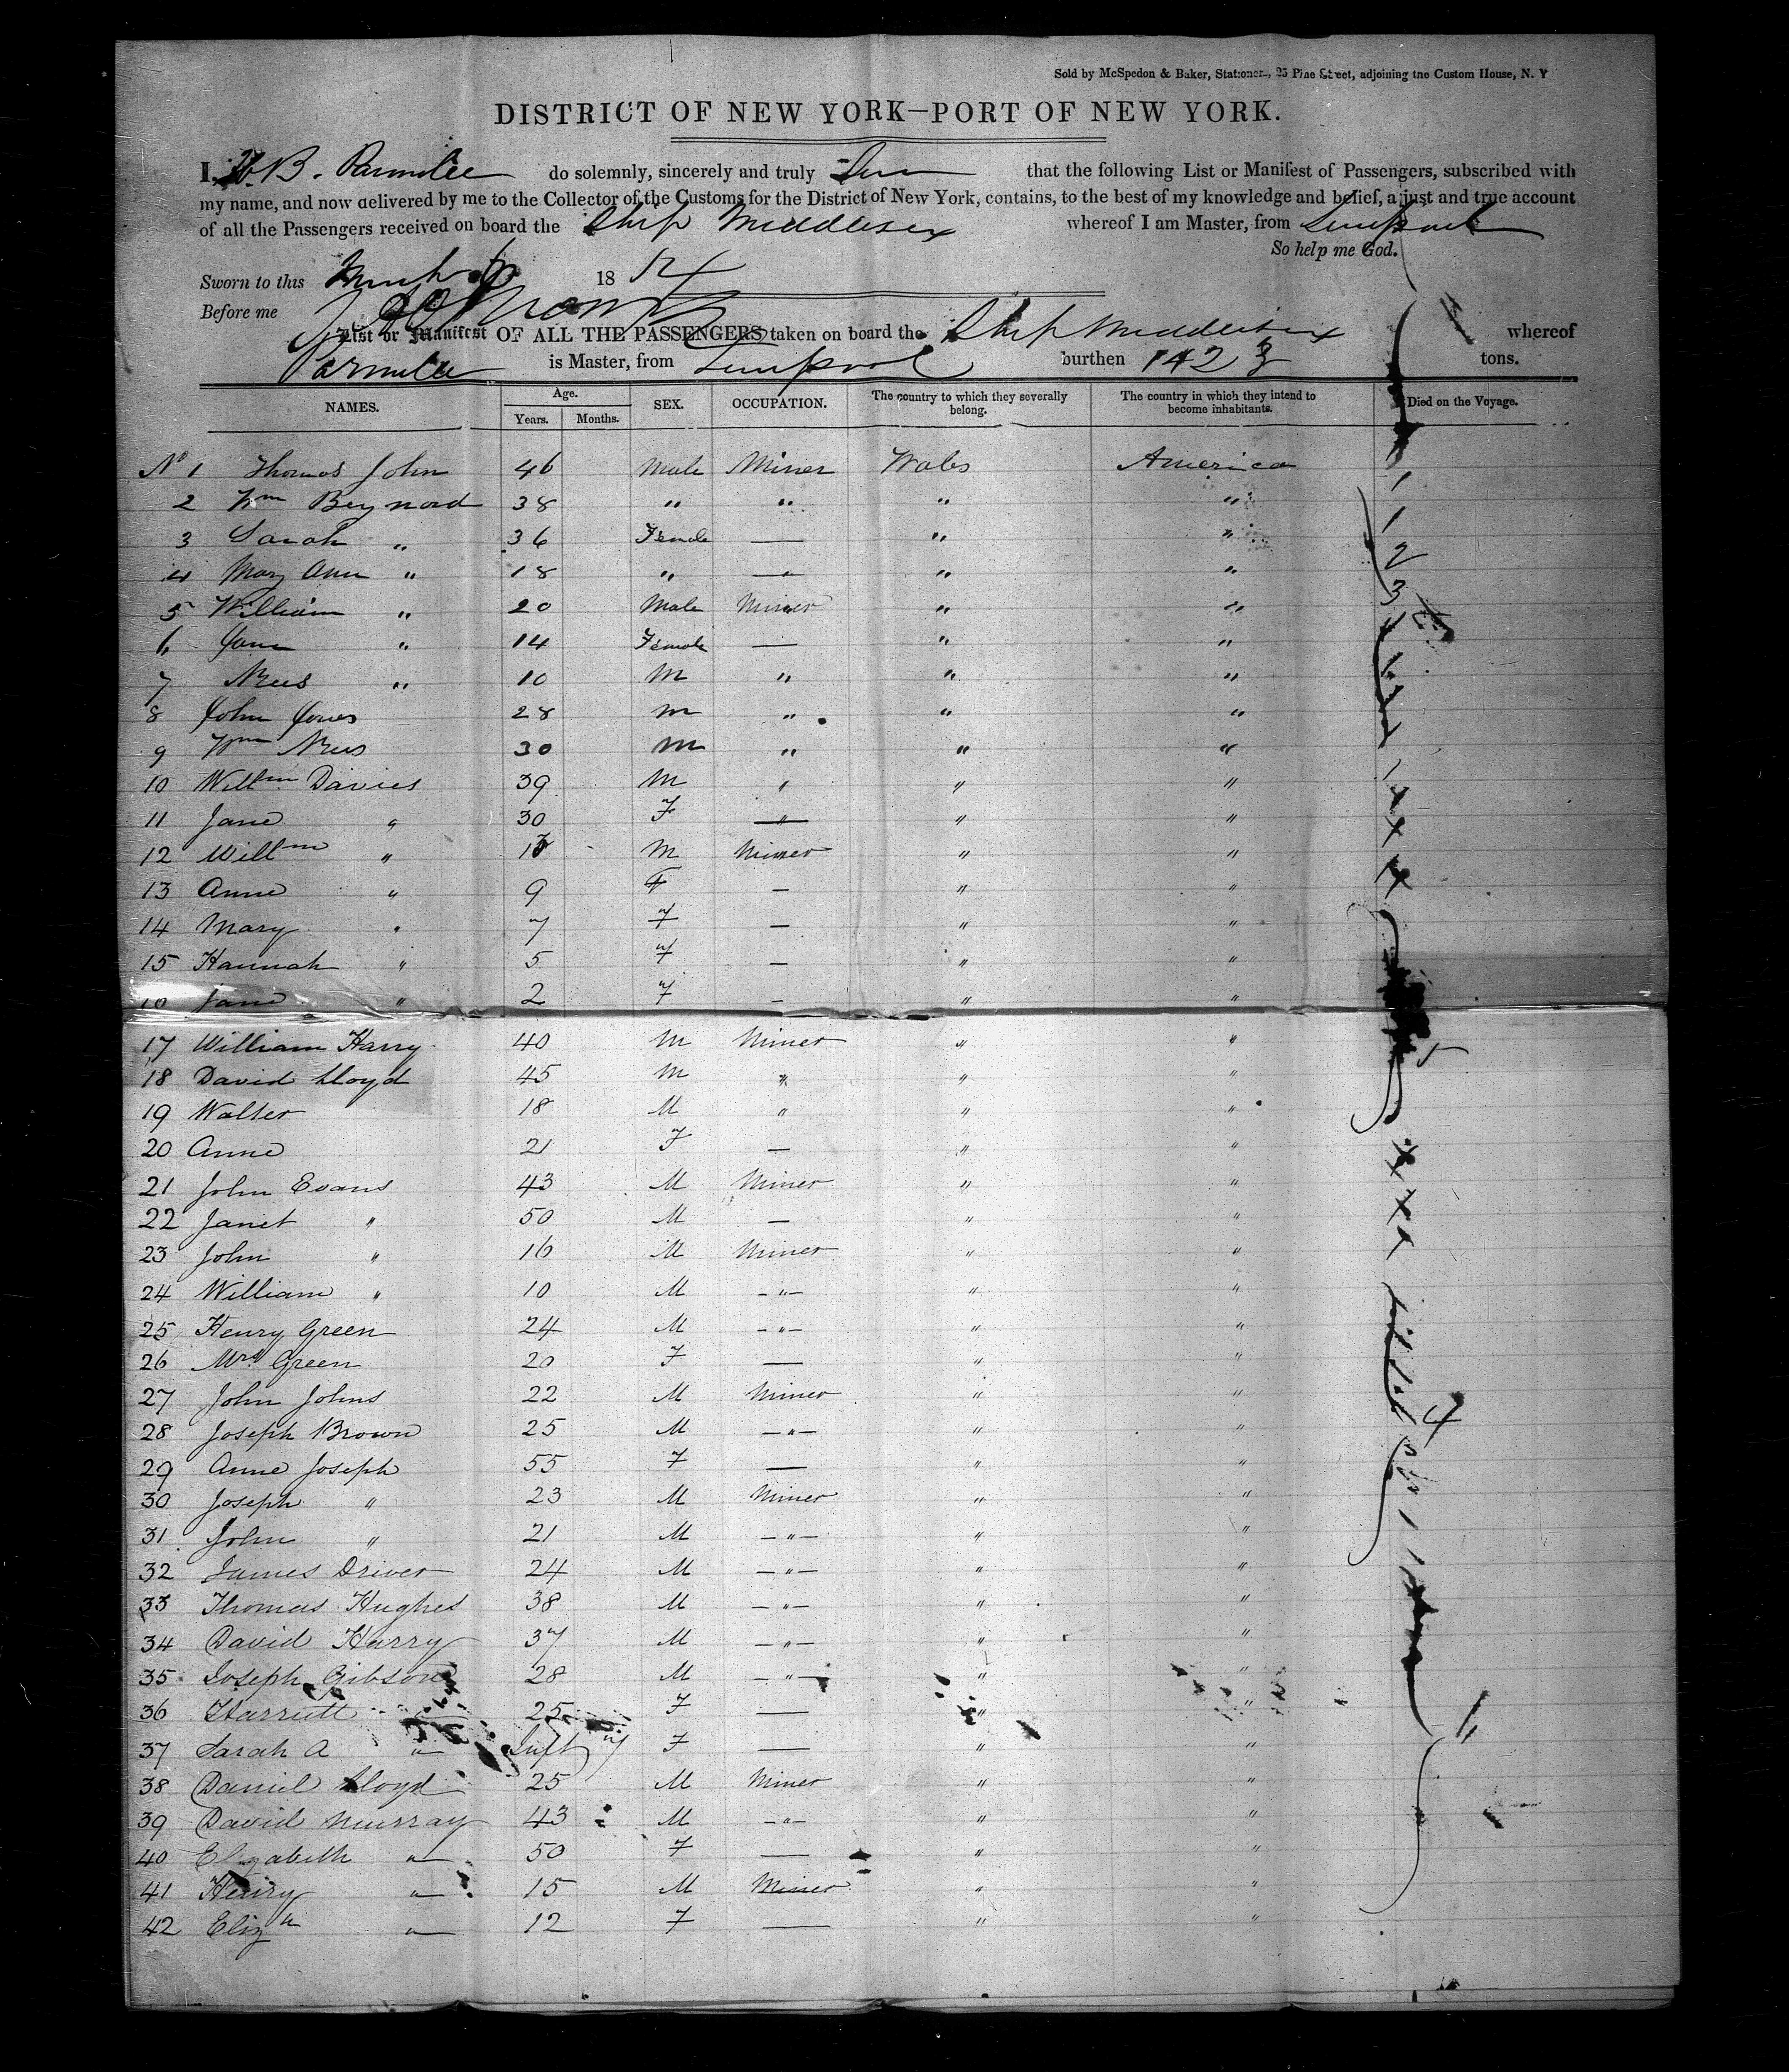 Sold by McSpedon & Baker, Stationers, 25 Pine Street, adjoining the Custom House, N. Y
DISTRICT OF NEW YORK—PORT OF NEW YORK.
I, B. Parmelee do solemnly, sincerely and truly that the following List or Manifest of Passengers, subscribed with
my name, and now delivered by me to the Collector of the Customs for the District of New York, contains, to the best of my knowledge and belief, a just and true account
of all the Passengers received on board the Ship Middlesex whereof I am Master, from Liverpool
So help me God.
Sworn to this 18
Before me
List or Manifest OF ALL THE PASSENGERS taken on board the Ship Middlesex whereof
Parmelee is Master, from Liverpool burthen 1423 tons.
NAMES. Age. Years. Months. SEX. OCCUPATION. The country to which they severally belong. The country in which they intend to become inhabitants. Died on the Voyage.
No 1 Thomas John 46 Male Miner Wales America
2 Wm Beynord 38 " " " "
3 Sarah " 36 Female — " "
4 Mary Ann " 18 " — " "
5 William " 20 Male Miner " "
6 Jane " 14 Female — " "
7 Rees " 10 M " " "
8 John Jones 28 M " " "
9 Wm Rees 30 M " " "
10 Willm Davies 39 M " " "
11 Jane " 30 F — " "
12 Willm " 13 M Miner " "
13 Anne " 9 F — " "
14 Mary " 7 F — " "
15 Hannah " 5 F — " "
16 Jane " 2 F — " "
17 William Harry 40 M Miner " "
18 David Lloyd 45 M " " "
19 Walter 18 M " " "
20 Anne 21 F — " "
21 John Evans 43 M Miner " "
22 Janet " 50 M — " "
23 John " 16 M Miner " "
24 William " 10 M —"— " "
25 Henry Green 24 M —"— " "
26 Mrs Green 20 F — " "
27 John Johns 22 M Miner " "
28 Joseph Brown 25 M —"— " "
29 Anne Joseph 55 F — " "
30 Joseph " 23 M Miner " "
31 John " 21 M —"— " "
32 James Driver 24 M —"— " "
33 Thomas Hughes 38 M —"— " "
34 David Harry 37 M —"— " "
35 Joseph Gibson 28 M —"— " "
36 Harriett 25 F — " "
37 Sarah A " Inft F — " "
38 Daniel Lloyd 25 M Miner " "
39 David Murray 43 M —"— " "
40 Elizabeth " 50 F — " "
41 Henry " 15 M Miner " "
42 Elizh " 12 F — " "